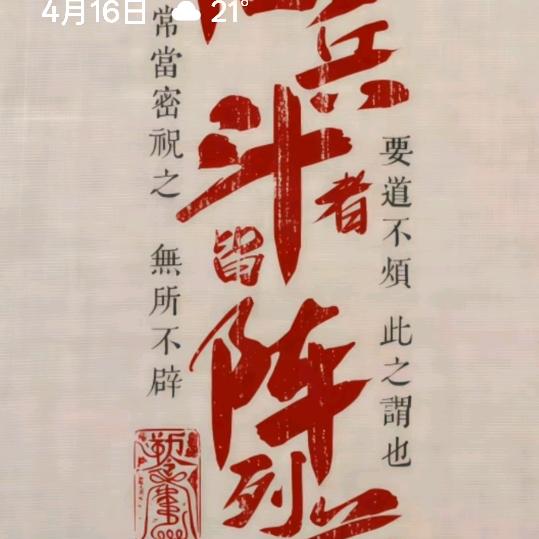 4月16日 21°
要道不煩 此之謂也
兵
斗者
皆
阵
列
常當密祝之 無所不辟